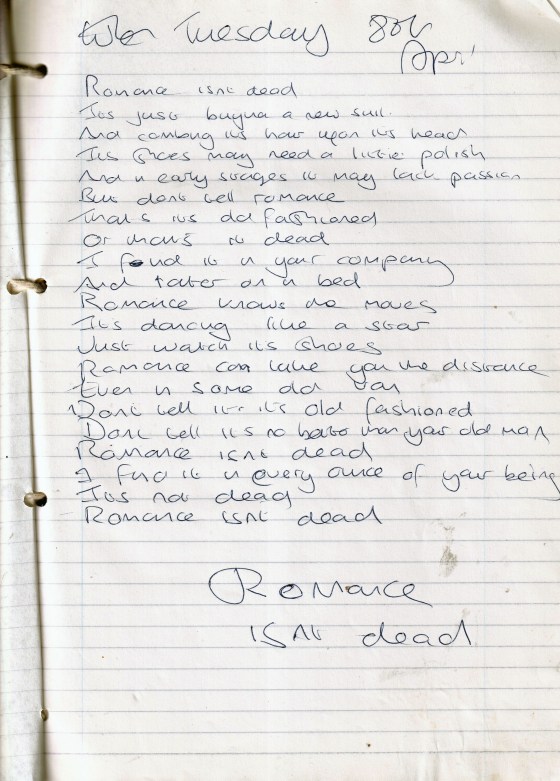 Tuesday 8th
Apri
Romance isnt dead
Its just buying a new suit.
And combing its hair upon its head
Its shoes may need a little polish
And in early stages it may lack passion
But dont tell romance
That's its old fashioned
Or that's it dead
I found it in your company
And later on in bed
Romance knows the moves
Its dancing like a star
Just watch its shoes
Romance can take you the distance
Even in some old
Dont tell it it's old fashioned
Dont tell its no better than your old man
Romance isnt dead
I find it in every ounce of your being
Its not dead
Romance isnt dead
Romance
isnt dead